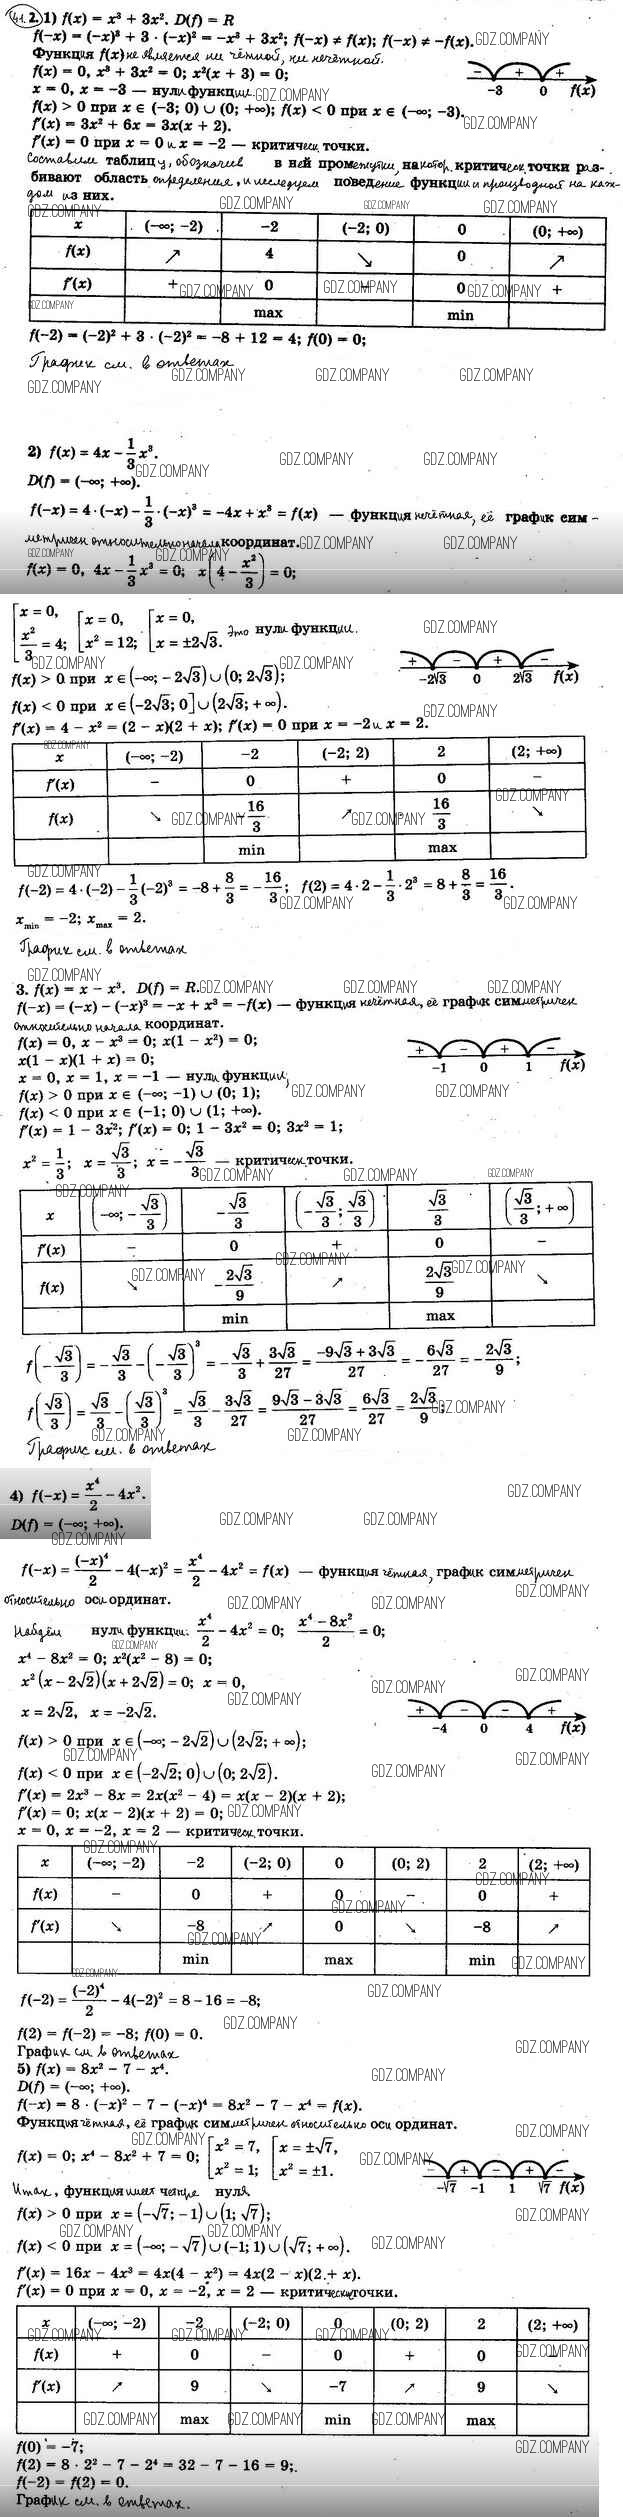 41.2. 1) f(x) = x³ + 3x². D(f) = R
f(−x) = (−x)³ + 3 · (−x)² = −x³ + 3x²; f(−x) ≠ f(x); f(−x) ≠ −f(x). GDZ.COMPANY
Функция f(x) не является ни чётной, ни нечётной.
f(x) = 0, x³ + 3x² = 0; x²(x + 3) = 0;
− + + −3 0 f(x)
x = 0, x = −3 — нули функции. GDZ.COMPANY
f(x) > 0 при x ∈ (−3; 0) ∪ (0; +∞); f(x) < 0 при x ∈ (−∞; −3).
f′(x) = 3x² + 6x = 3x(x + 2). GDZ.COMPANY
f′(x) = 0 при x = 0 и x = −2 — критическ. точки.
Составим таблицу, обозначив в ней промежутки, на котор. критическ. точки раз-
бивают область определения, и исследуем поведение функции и производной на каж-
дом из них.
GDZ.COMPANY GDZ.COMPANY GDZ.COMPANY GDZ.COMPANY
x (−∞; −2) −2 (−2; 0) 0 (0; +∞)
f(x) ↗ 4 ↘ 0 ↗
f′(x) + 0 − 0 +
GDZ.COMPANY GDZ.COMPANY GDZ.COMPANY
GDZ.COMPANY max min
f(−2) = (−2)² + 3 · (−2)² = −8 + 12 = 4; f(0) = 0;
График см. в ответах
GDZ.COMPANY GDZ.COMPANY GDZ.COMPANY GDZ.COMPANY
2) f(x) = 4x − 1/3 x³.
GDZ.COMPANY GDZ.COMPANY GDZ.COMPANY
D(f) = (−∞; +∞).
f(−x) = 4 · (−x) − 1/3 · (−x)³ = −4x + x³ = f(x) — функция нечётная, её график сим-
метричен относительно начала координат. GDZ.COMPANY GDZ.COMPANY
GDZ.COMPANY GDZ.COMPANY
f(x) = 0, 4x − 1/3 x³ = 0; x(4 − x²/3) = 0;
[x = 0, x²/3 = 4; [x = 0, x² = 12; [x = 0, x = ±2√3. Это нули функции. GDZ.COMPANY
+ − + − −2√3 0 2√3 f(x)
GDZ.COMPANY GDZ.COMPANY GDZ.COMPANY
f(x) > 0 при x ∈ (−∞; −2√3) ∪ (0; 2√3);
f(x) < 0 при x ∈ (−2√3; 0] ∪ (2√3; +∞). GDZ.COMPANY
f′(x) = 4 − x² = (2 − x)(2 + x); f′(x) = 0 при x = −2 и x = 2.
GDZ.COMPANY
x (−∞; −2) −2 (−2; 2) 2 (2; +∞)
f′(x) − 0 + 0 −
GDZ.COMPANY
f(x) ↘ −16/3 ↗ 16/3 ↘
GDZ.COMPANY GDZ.COMPANY
min max
GDZ.COMPANY
f(−2) = 4 · (−2) − 1/3 (−2)³ = −8 + 8/3 = −16/3; f(2) = 4 · 2 − 1/3 · 2³ = 8 + 8/3 = 16/3.
GDZ.COMPANY GDZ.COMPANY
xmin = −2; xmax = 2.
График см. в ответах
GDZ.COMPANY
3. f(x) = x − x³. D(f) = R. GDZ.COMPANY GDZ.COMPANY GDZ.COMPANY
f(−x) = (−x) − (−x)³ = −x + x³ = −f(x) — функция нечётная, её график симметричен
относительно начала координат.
f(x) = 0, x − x³ = 0; x(1 − x²) = 0;
+ − + − −1 0 1 f(x)
x(1 − x)(1 + x) = 0;
x = 0, x = 1, x = −1 — нули функции;
f(x) > 0 при x ∈ (−∞; −1) ∪ (0; 1); GDZ.COMPANY GDZ.COMPANY
f(x) < 0 при x ∈ (−1; 0) ∪ (1; +∞).
f′(x) = 1 − 3x²; f′(x) = 0; 1 − 3x² = 0; 3x² = 1;
x² = 1/3; x = √3/3; x = −√3/3 — критическ. точки.
GDZ.COMPANY GDZ.COMPANY GDZ.COMPANY GDZ.COMPANY
x (−∞; −√3/3) −√3/3 (−√3/3; √3/3) √3/3 (√3/3; +∞)
f′(x) − 0 + 0 −
GDZ.COMPANY
f(x) ↘ −2√3/9 ↗ 2√3/9 ↘
GDZ.COMPANY GDZ.COMPANY
min max
f(−√3/3) = −√3/3 − (−√3/3)³ = −√3/3 + 3√3/27 = (−9√3 + 3√3)/27 = −6√3/27 = −2√3/9;
f(√3/3) = √3/3 − (√3/3)³ = √3/3 − 3√3/27 = (9√3 − 3√3)/27 = 6√3/27 = 2√3/9; GDZ.COMPANY
GDZ.COMPANY GDZ.COMPANY
График см. в ответах
4) f(−x) = x⁴/2 − 4x². GDZ.COMPANY
D(f) = (−∞; +∞). GDZ.COMPANY GDZ.COMPANY
GDZ.COMPANY
f(−x) = (−x)⁴/2 − 4(−x)² = x⁴/2 − 4x² = f(x) — функция чётная, график симметричен
GDZ.COMPANY
относительно оси ординат. GDZ.COMPANY GDZ.COMPANY
Найдём нули функции: x⁴/2 − 4x² = 0; (x⁴ − 8x²)/2 = 0;
GDZ.COMPANY
x⁴ − 8x² = 0; x²(x² − 8) = 0;
x²(x − 2√2)(x + 2√2) = 0; x = 0, GDZ.COMPANY GDZ.COMPANY
x = 2√2, x = −2√2. GDZ.COMPANY
+ − − + −4 0 4 f(x)
f(x) > 0 при x ∈ (−∞; −2√2) ∪ (2√2; +∞);
GDZ.COMPANY GDZ.COMPANY
f(x) < 0 при x ∈ (−2√2; 0) ∪ (0; 2√2). GDZ.COMPANY
f′(x) = 2x³ − 8x = 2x(x² − 4) = x(x − 2)(x + 2);
f′(x) = 0; x(x − 2)(x + 2) = 0; GDZ.COMPANY
x = 0, x = −2, x = 2 — критическ. точки.
GDZ.COMPANY
x (−∞; −2) −2 (−2; 0) 0 (0; 2) 2 (2; +∞)
GDZ.COMPANY
f(x) − 0 + 0 − 0 +
GDZ.COMPANY
f′(x) ↘ −8 ↗ 0 ↘ −8 ↗
GDZ.COMPANY
min max min GDZ.COMPANY
GDZ.COMPANY
f(−2) = (−2)⁴/2 − 4(−2)² = 8 − 16 = −8; GDZ.COMPANY
GDZ.COMPANY
f(2) = f(−2) = −8; f(0) = 0.
График см. в ответах GDZ.COMPANY
5) f(x) = 8x² − 7 − x⁴. GDZ.COMPANY
D(f) = (−∞; +∞).
f(−x) = 8 · (−x)² − 7 − (−x)⁴ = 8x² − 7 − x⁴ = f(x).
Функция чётная, её график симметричен относительно оси ординат. GDZ.COMPANY
GDZ.COMPANY
f(x) = 0; x⁴ − 8x² + 7 = 0; [x² = 7, x² = 1; [x = ±√7, x² = ±1. GDZ.COMPANY
− + − + − −√7 −1 1 √7 f(x)
Итак, функция имеет четыре нуля
f(x) > 0 при x = (−√7; −1) ∪ (1; √7); GDZ.COMPANY
GDZ.COMPANY GDZ.COMPANY GDZ.COMPANY
f(x) < 0 при x = (−∞; −√7) ∪ (−1; 1) ∪ (√7; +∞).
f′(x) = 16x − 4x³ = 4x(4 − x²) = 4x(2 − x)(2 + x).
f′(x) = 0 при x = 0, x = −2, x = 2 — критические точки.
x (−∞; −2) −2 (−2; 0) 0 (0; 2) 2 (2; +∞)
GDZ.COMPANY GDZ.COMPANY GDZ.COMPANY
f(x) + 0 − 0 + 0 −
GDZ.COMPANY
f′(x) ↗ 9 ↘ −7 ↗ 9 ↘
GDZ.COMPANY max GDZ.COMPANY min GDZ.COMPANY max
f(0) = −7; GDZ.COMPANY
f(2) = 8 · 2² − 7 − 2⁴ = 32 − 7 − 16 = 9;
f(−2) = f(2) = 0.
График см. в ответах.